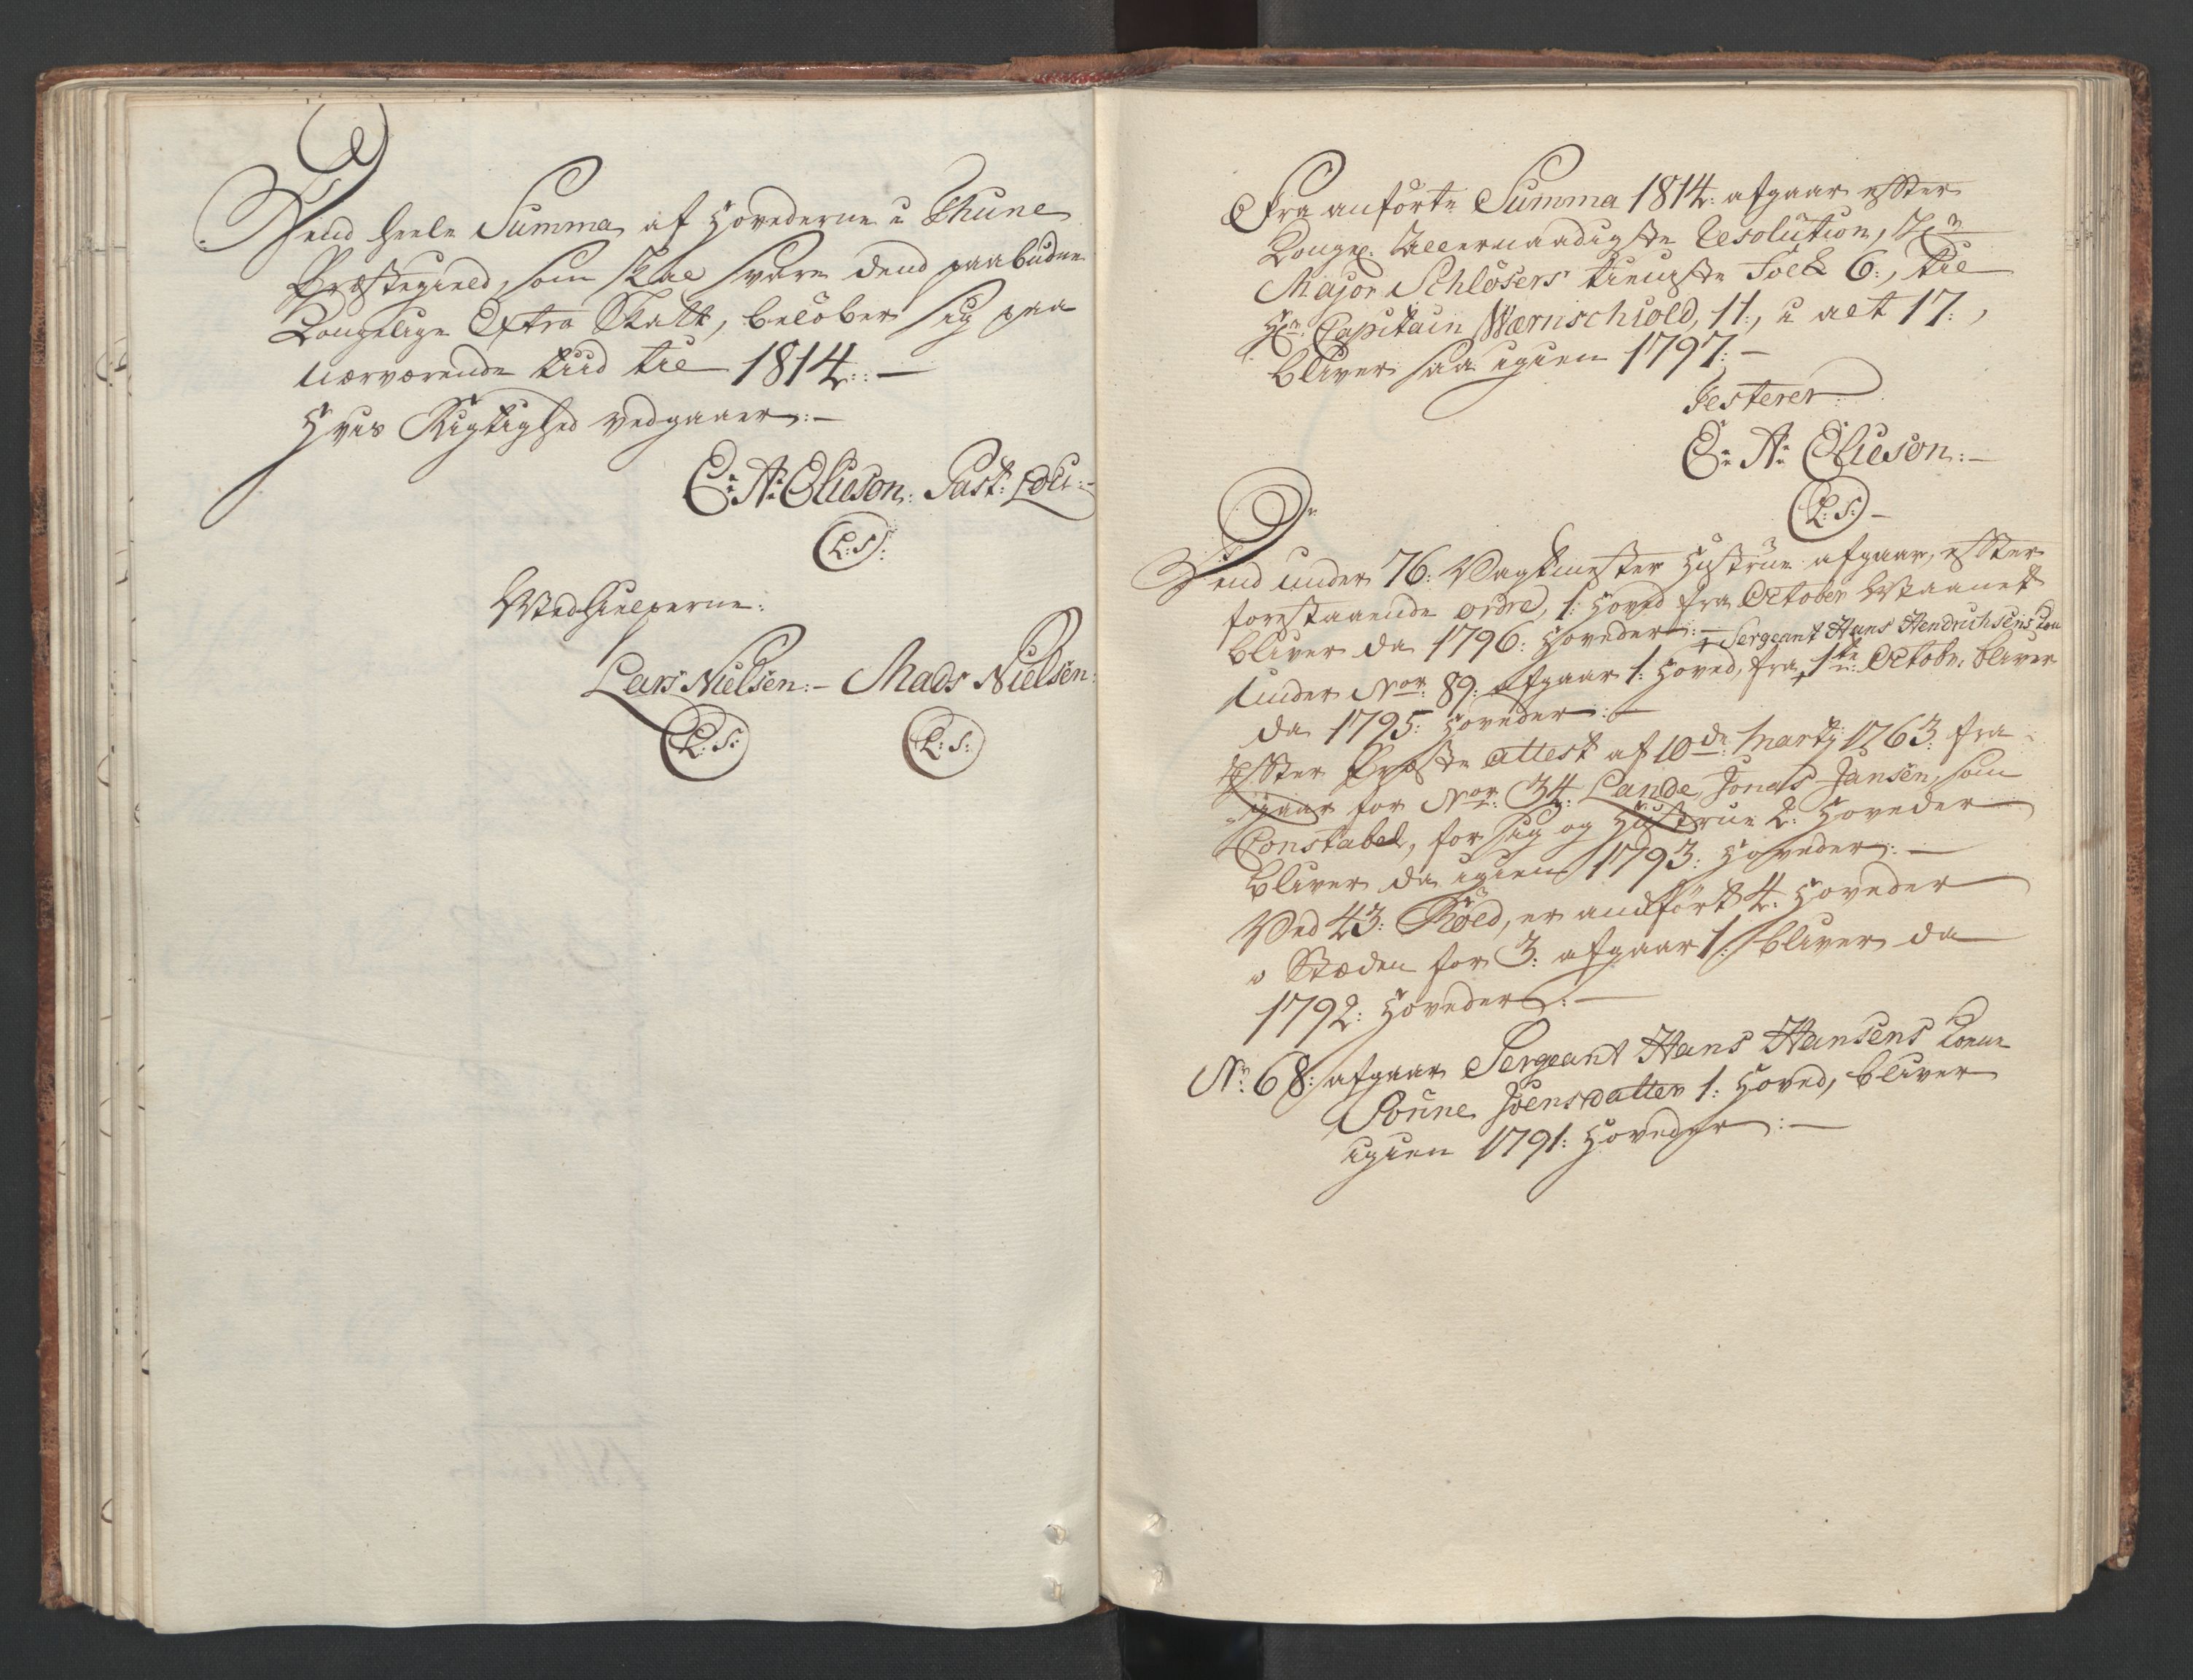 Dend heele Summa af Hovederne i Thune
Præstegield, som skal svare dend paabudne
Kongelige Extra Skatt, beløber sig paa
nærværende tiid til 1814:. —
Hvis Rigtighed vedgaaer: —
E: A: Elieson. Past: Loci:
(L:S:)
Medhielperne:
Lars Nielsen: – Mads Nielsen:
(L:S:) (L:S:)
Fra anførte Summa 1814: afgaar effter
Kongel: Allernaadigste Resolution, H:r
Major Schlösers tieneste Folk 6:, til
H:r Capitain Wærnschiold, 11:, i alt 17:,
bliver saa igien 1797: —
Testerer
E: A: Elieson: —
(L:S:) —
Dend under 76: Vagtmester Hustrue afgaar, effter
forestaaende ordre, 1: Hoved fra October Maanet
bliver da 1796: Hoveder: — + Sergeant Hans Hendrichsens Kone
Under Nor: 89: afgaar 1: Hoved, fra + 1te October bliver
da 1795: Hoveder: —
Effter Præste attest af 10de Martj 1763: fra-
gaar for Nor: 34: Lande, Jonas Jansen, som
Constabel, for sig og Hustrue 2: Hoveder
bliver da igien 1793: Hoveder: —
Ved 43: Röed, er anført 4: Hoveder
i Stæden for 3: afgaar 1: bliver da
1792: Hoveder: —
Nr: 68: afgaar Sergeant Hans Hansens Kone
Joensdatter 1: Hoved, bliver
igien 1791: Hoveder: —